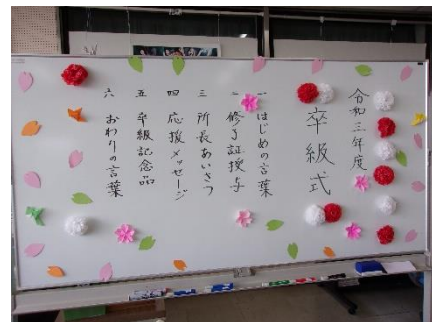 令和三年度
卒級式
一 はじめの言葉
二 修了証授与
三 所長あいさつ
四 応援メッセージ
五 卒級記念品
六 おわりの言葉